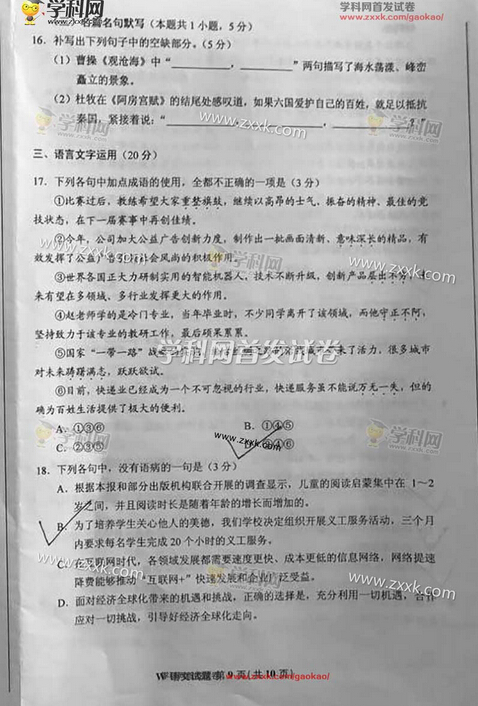 学科网
WWW.ZXXK.COM
学科网首发试卷
www.zxxk.com/gaokao/
名篇名句默写（本题共1小题，5分）
16. 补写出下列句子中的空缺部分。（5分）
（1）曹操《观沧海》中“____，____”两句描写了海水荡漾、峰峦
矗立的景象。
（2）杜牧在《阿房宫赋》的结尾处感叹道，如果六国爱护自己的百姓，就足以抵抗
秦国，紧接着说：“____，____，____？”
三、语言文字运用（20分）
17. 下列各句中加点成语的使用，全都不正确的一项是（3分）
①比赛过后，教练希望大家重整旗鼓，继续以高昂的士气、振奋的精神、最佳的竞
技状态，在下一届赛事中再创佳绩。
②今年，公司加大公益广告创新力度，制作出一批画面清新、意味深长的精品，有
效发挥了公益广告引领社会风尚的积极作用。
③世界各国正大力研制实用的智能机器人，技术不断升级，创新产品层出不穷，未
来有望在多领域、多行业发挥更大的作用。
④赵老师学的是冷门专业，当年毕业时，不少同学离开了该领域，而他守正不阿，
坚持致力于该专业的教研工作，最后硕果累累。
⑤国家“一带一路”战
来了活力，很多城市
对未来踌躇满志，跃跃欲试。
⑥目前，快递业已经成为一个不可忽视的行业，快递服务虽不能说万无一失，但的
确为百姓生活提供了极大的便利。
A. ①③⑥
B. ①④⑤
C. ②③⑤
D. ②④⑥
18. 下列各句中，没有语病的一句是（3分）
A. 根据本报和部分出版机构联合开展的调查显示，儿童的阅读启蒙集中在 1～2
岁之间，并且阅读时长是随着年龄的增长而增加的。
B. 为了培养学生关心他人的美德，我们学校决定组织开展义工服务活动，三个月
内要求每名学生完成20个小时的义工服务。
C. 在互联网时代，各领域发展都需要速度更快、成本更低的信息网络，网络提速
降费能够推动“互联网+”快速发展和企业广泛受益。
D. 面对经济全球化带来的机遇和挑战，正确的选择是，充分利用一切机遇，合作
应对一切挑战，引导好经济全球化走向。
语文试题 第9页（共10页）
www.zxxk.com/gaokao/